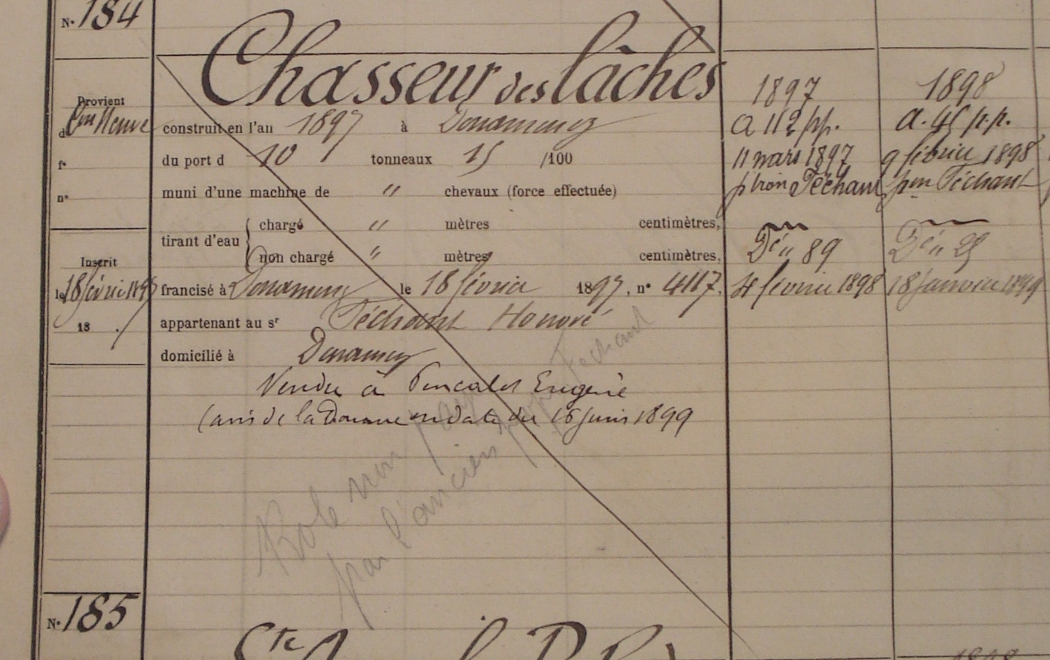 N° 184
Chasseur des lâches
Provient
d
construit en l'an 1897 à Douarnenez
f°
du port d 10 tonneaux 15 /100
n°
muni d'une machine de " chevaux (force effectuée)
tirant d'eau
chargé " mètres centimètres,
non chargé " mètres centimètres,
Inscrit
le 18 février 1897
18
francisé à Douarnenez le 18 février 1897, n° 417.
appartenant au sr Téchant Honoré
domicilié à Douarnenez
Vendu à Eugène
(avis de la Douane en date du 16 juin 1899
Role non payé
par l'ancien Téchant
1897
a 112 pp.
11 mars 1897
ptron Téchant
Dé" 89
4 février 1898
1898
a. 45 p.p.
9 février 1898
Téchant
18 janvier 1899
N° 185
Ste